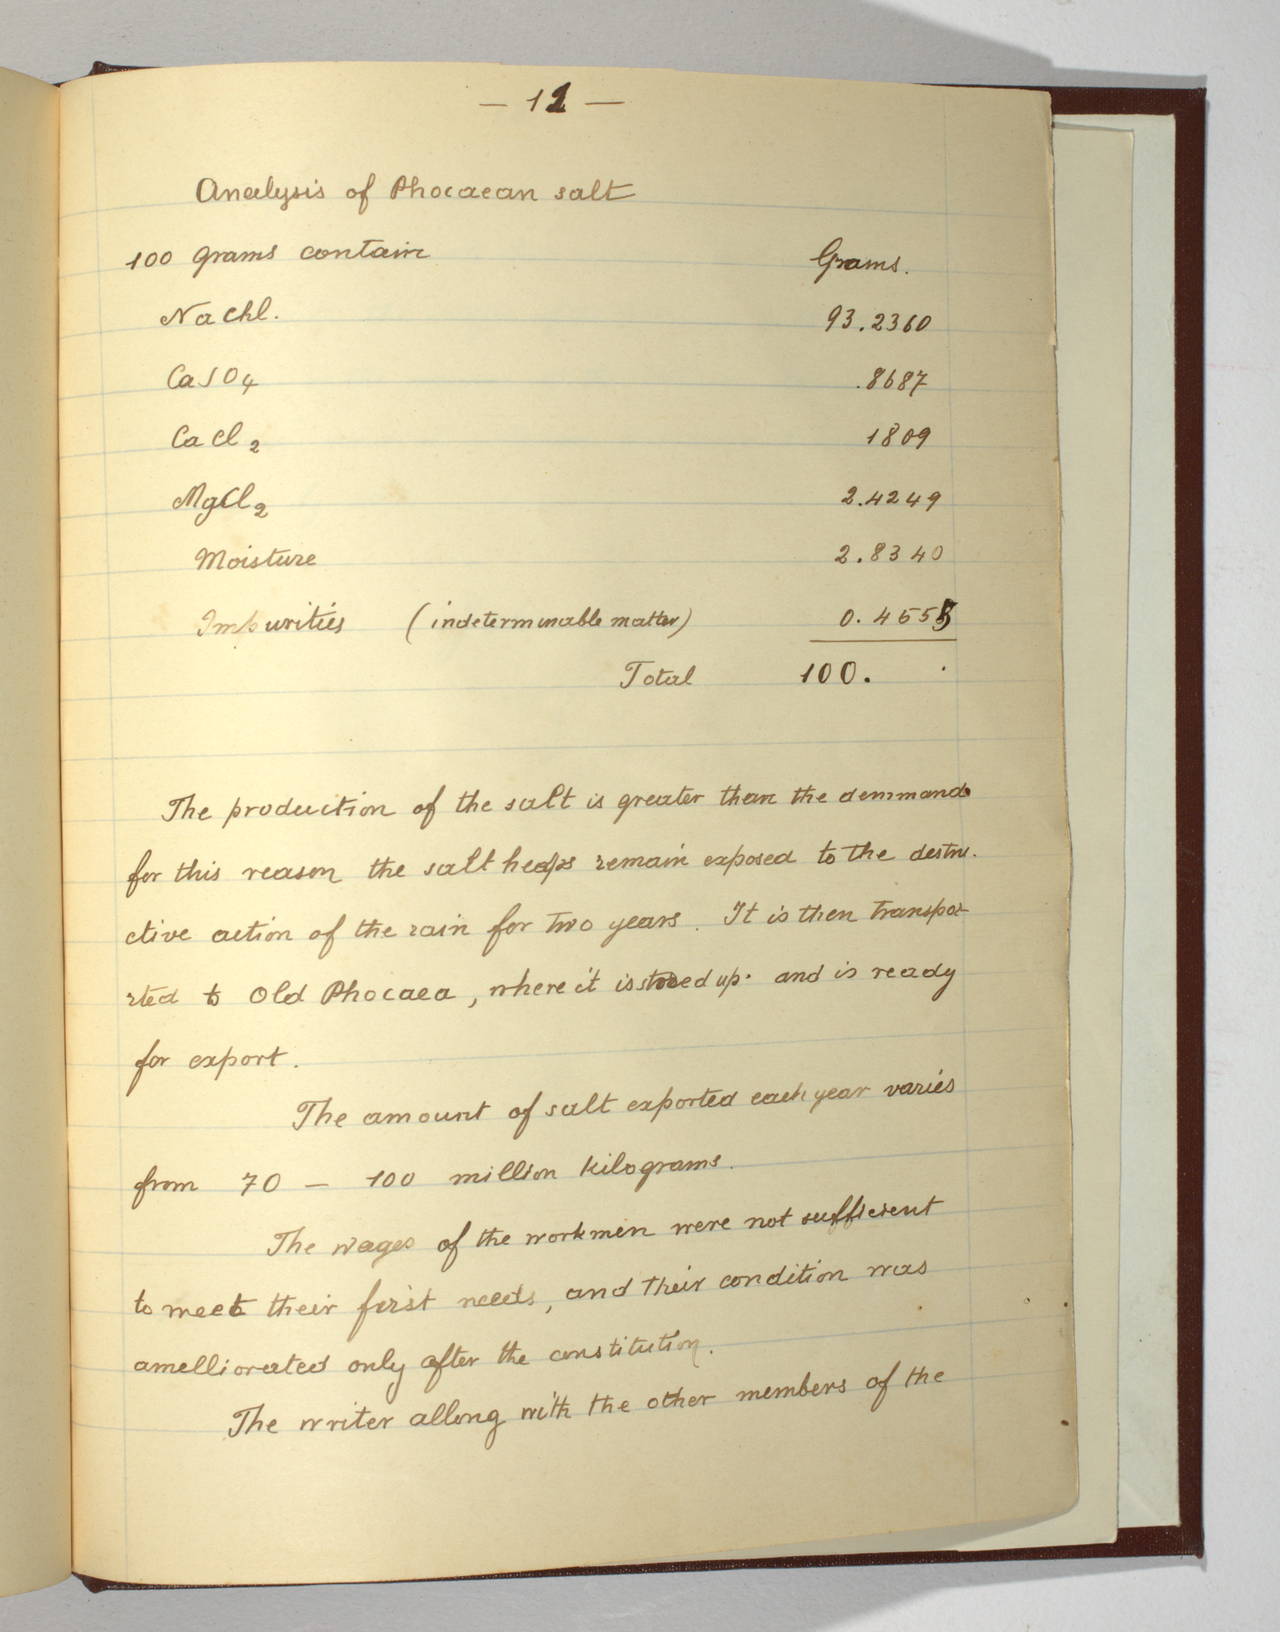 — 12 —
Analysis of Phocaean salt
100 grams contain Grams.
Na Chl. 93.2360
CaSO4 .8687
CaCl2 1809
MgCl2 2.4249
Moisture 2.8340
Impurities (indeterminable matter) 0.4555
Total 100. .
The production of the salt is greater than the demmand
for this reason the salt heaps remain exposed to the destru-
ctive action of the rain for two years. It is then transpor-
rted to Old Phocaea, where it is stored up. and is ready
for export.
The amount of salt exported each year varies
from 70 — 100 million kilograms.
The wages of the workmen were not sufficient
to meet their first needs, and their condition was
amelliorated only after the constitution.
The writer allong with the other members of the